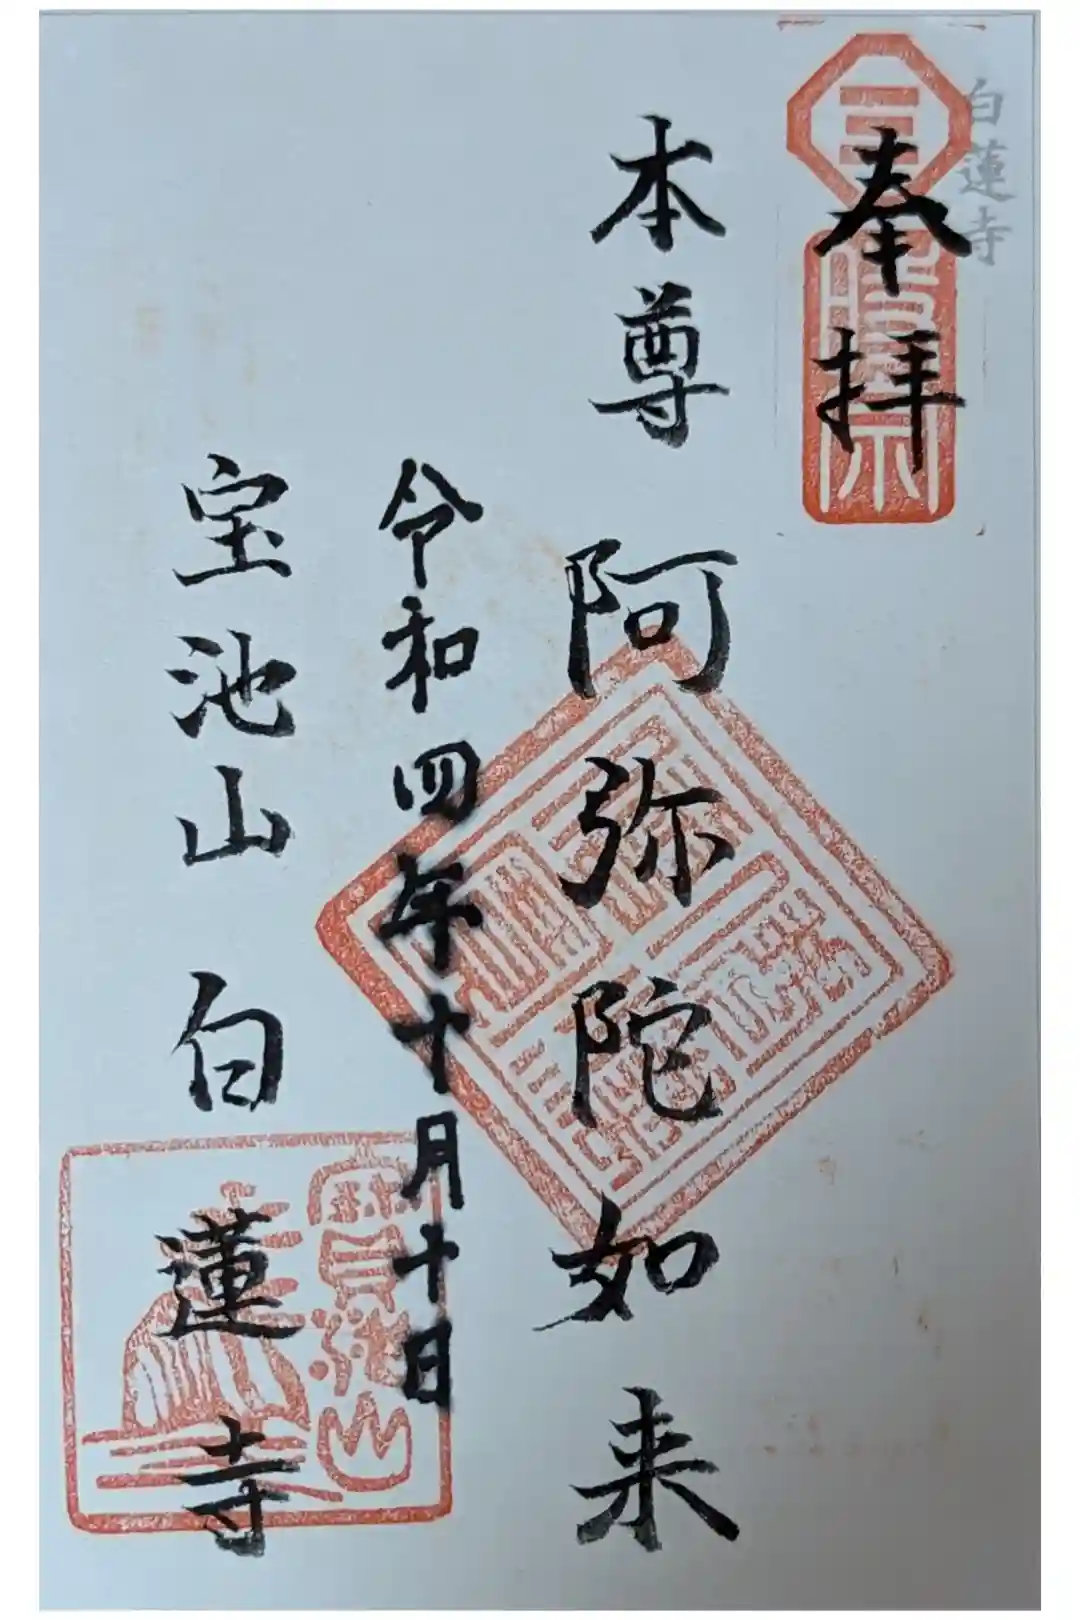 白蓮寺
奉拝
本尊 阿弥陀如来
令和四年十月十日
宝池山 白蓮寺
時宗
寶池山